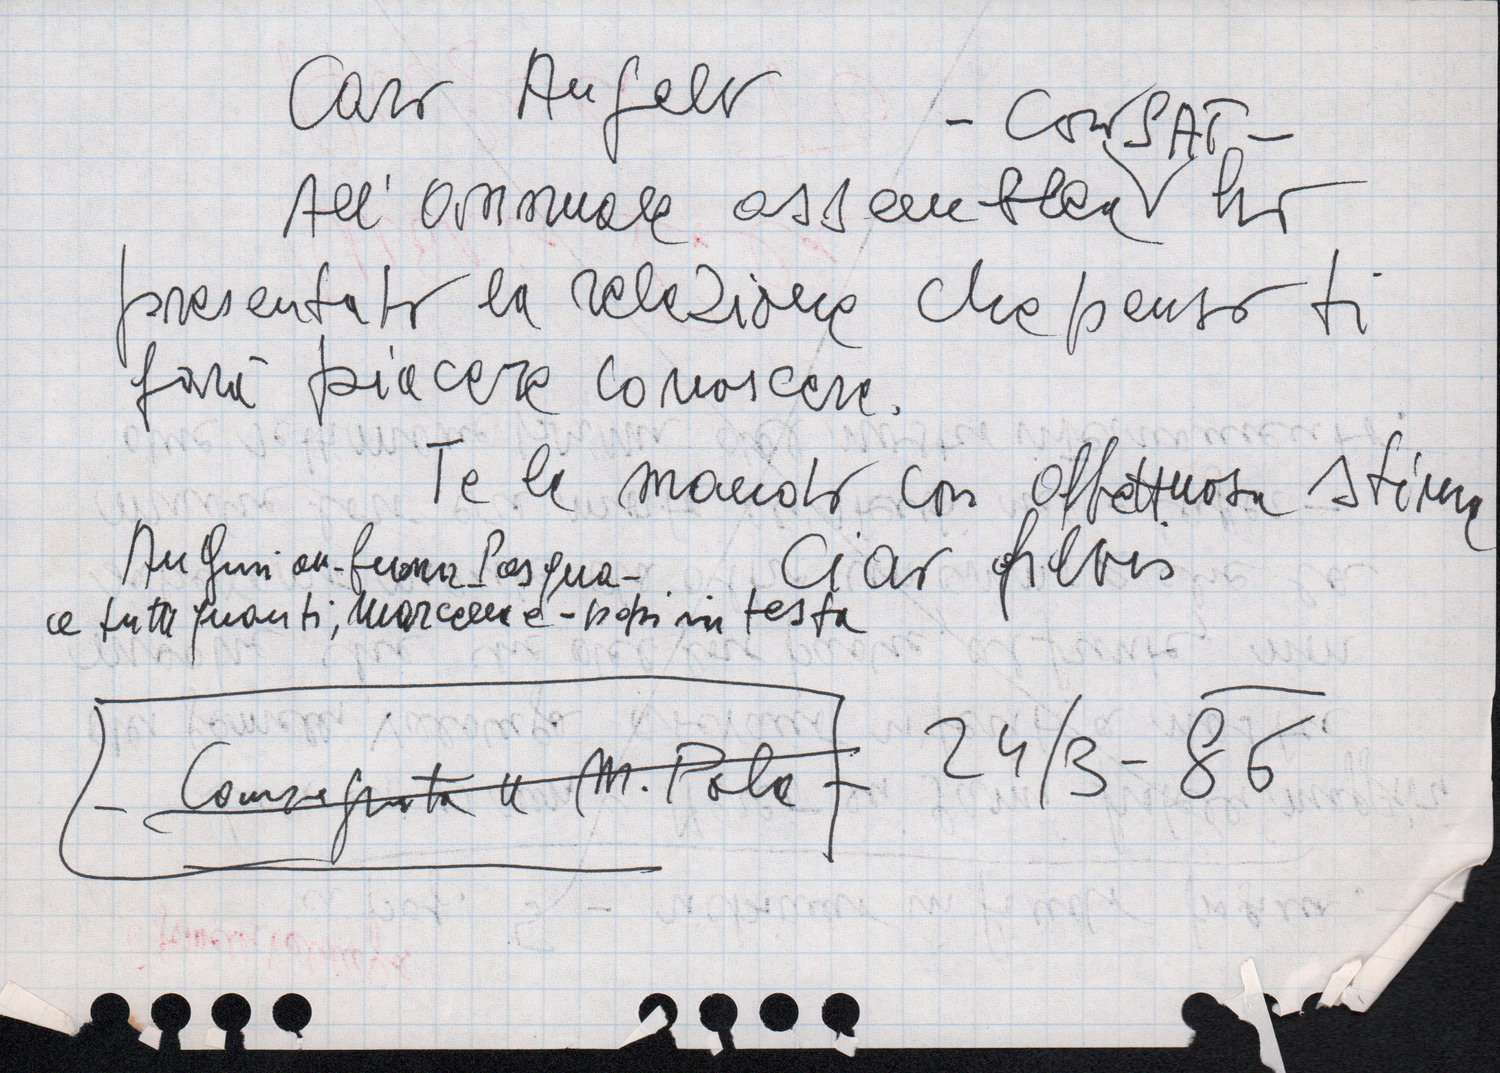 Caro Angelo
- ConSAT -
All'annuale assemblea ho
presentato la relazione che penso ti
farà piacere conoscere.
Te la mando con affettuosa stima
Auguri Buona Pasqua - Ciao
a tutti quanti, in testa
- Consegnata a M. Pola - 24/3-86